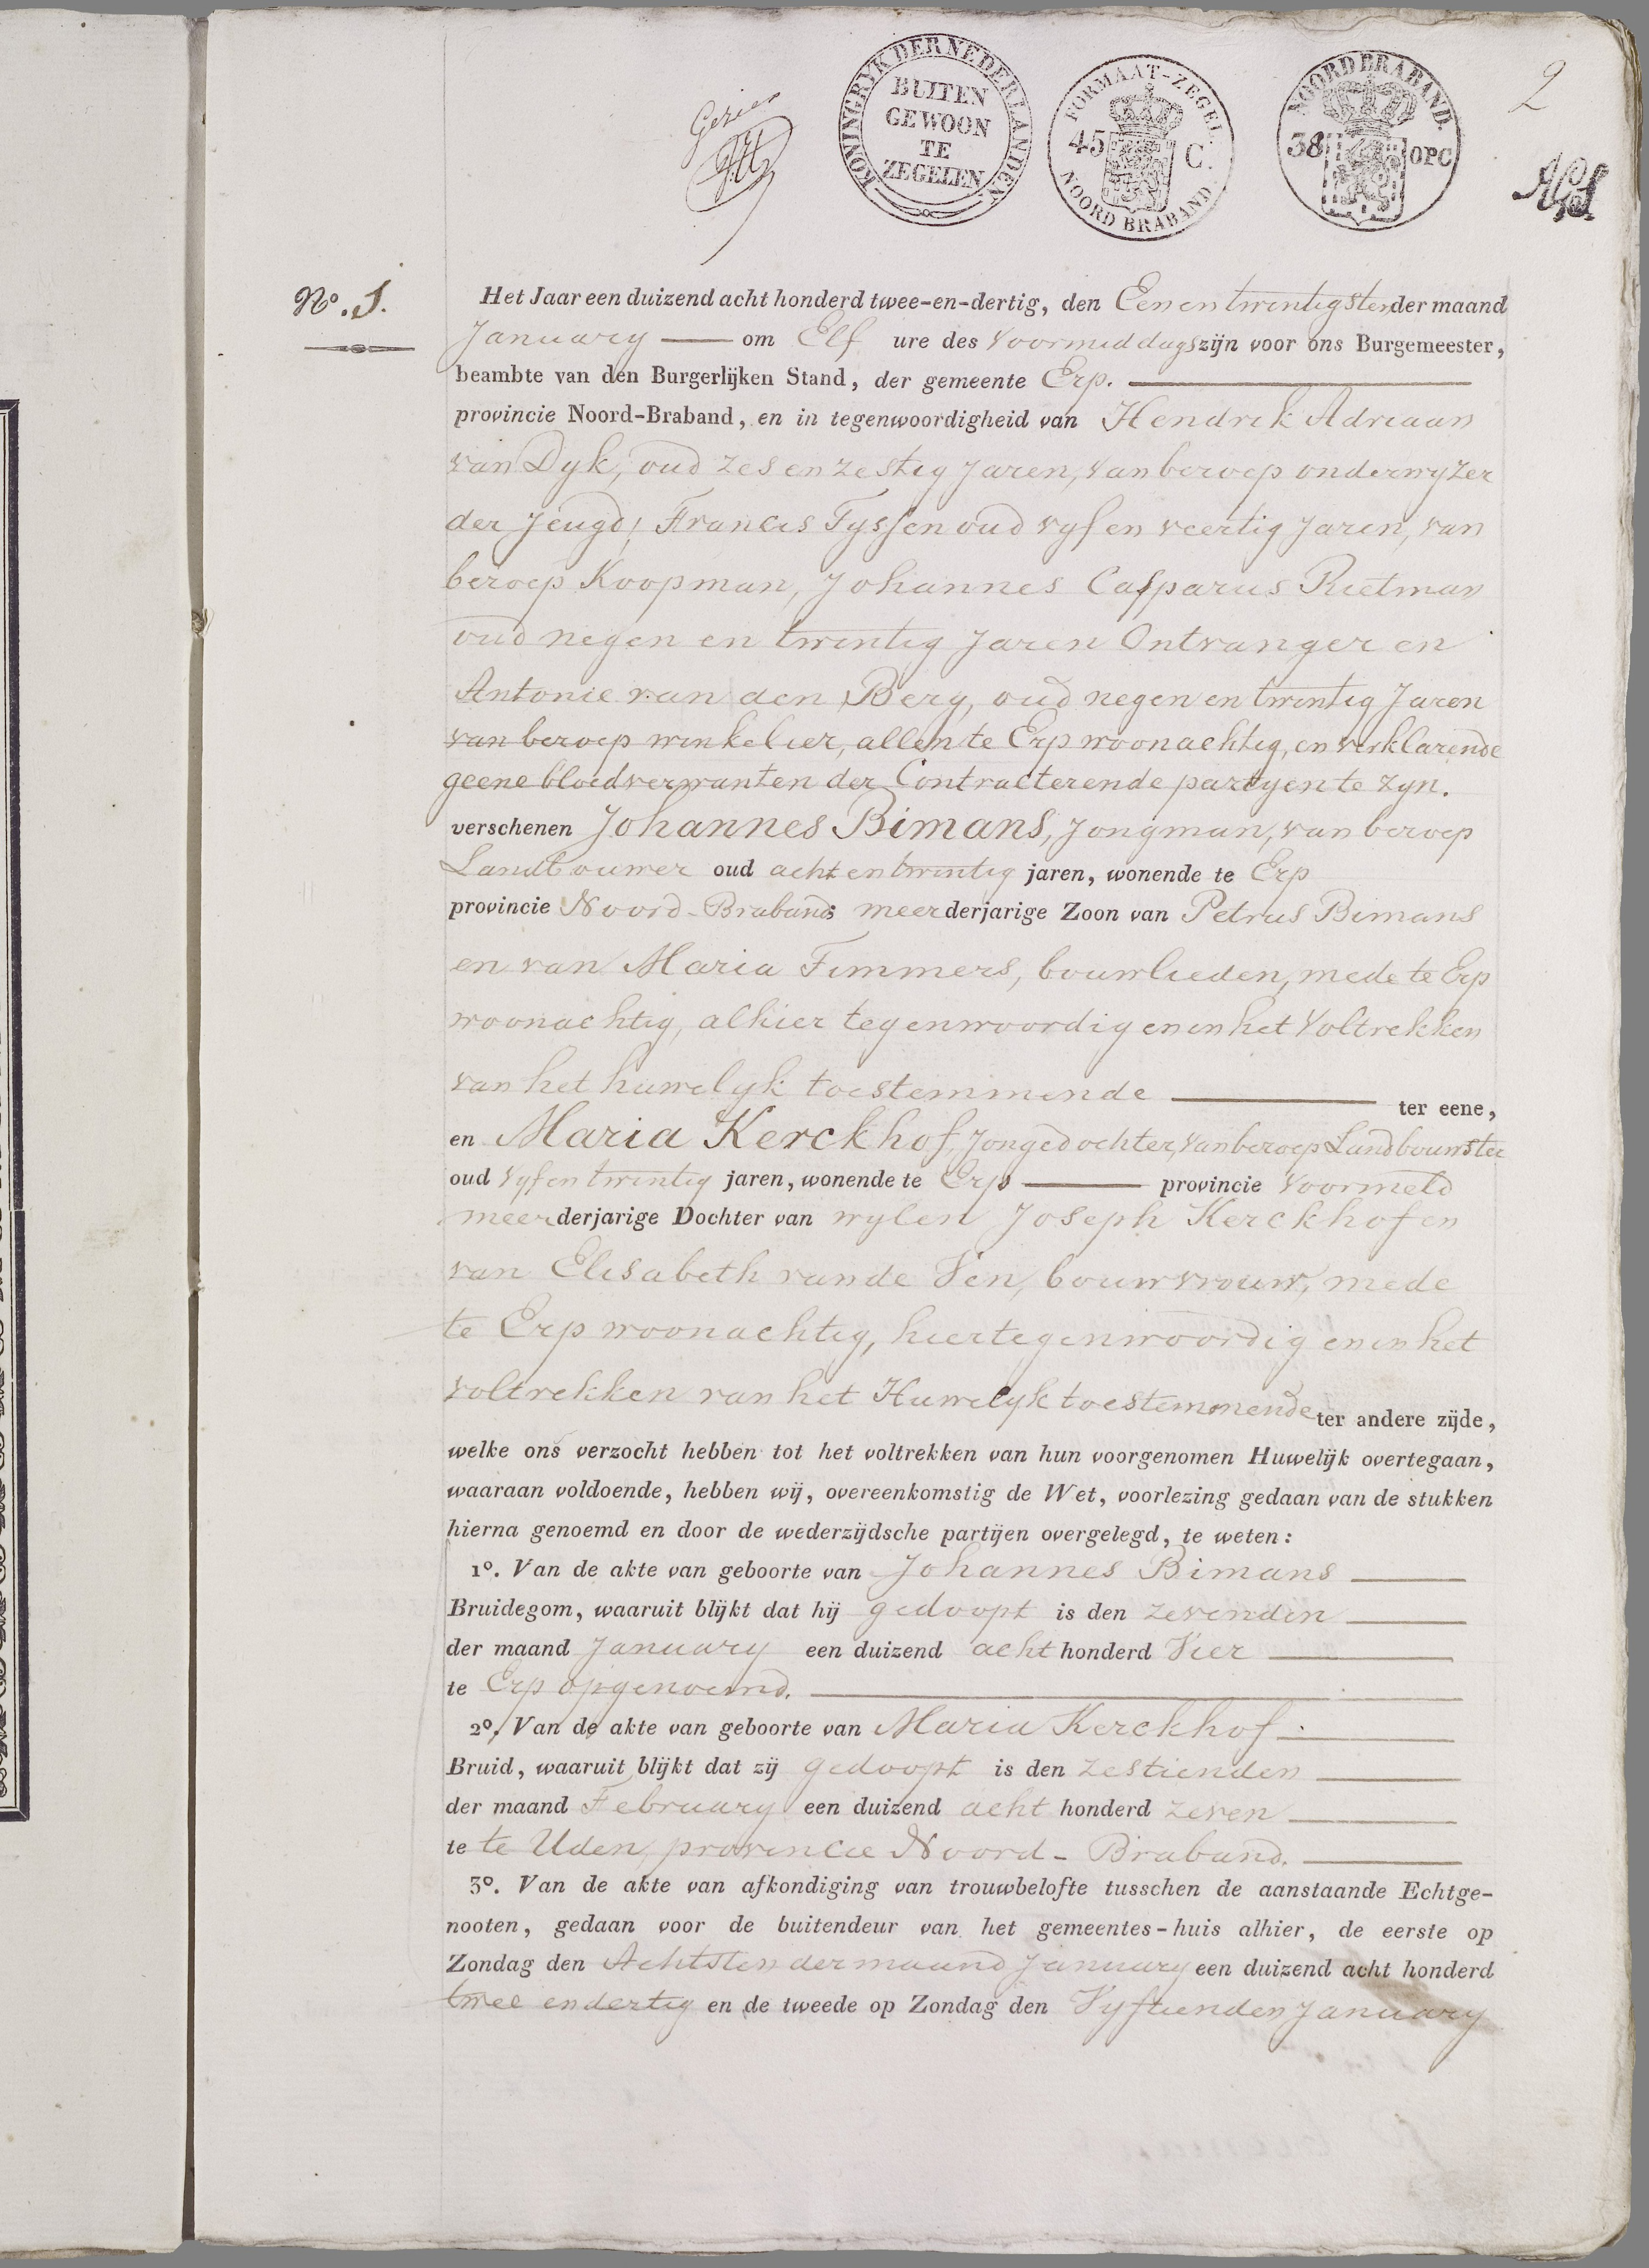 2
Gezien
KONINGRYK DER NEDERLANDEN
BUITEN
GEWOON
TE
ZEGELEN
FORMAAT-ZEGEL
45 C.
NOORD BRABAND
NOORD BRABAND.
38 OPC
No. 1.
Het Jaar een duizend acht honderd twee-en-dertig, den Een en twintigsten der maand
January — om Elf ure des Voormiddags zijn voor ons Burgemeester,
beambte van den Burgerlijken Stand, der gemeente Erp. —
provincie Noord-Braband, en in tegenwoordigheid van Hendrik Adriaan
van Dyk, oud zes en zestig Jaren, van beroep onderwyzer
der Jeugd, Francis Tyssen oud vyf en veertig Jaren, van
beroep Koopman, Johannes Casparus Rietman
oud negen en twintig Jaren Ontvanger en
Antonie van den Berg, oud negen en twintig Jaren
van beroep winkelier, allen te Erp woonachtig, en verklarende
geene bloedverwanten der Contracterende partyen te zyn.
verschenen Johannes Bimans, Jongman, van beroep
Landbouwer oud acht en twintig jaren, wonende te Erp
provincie Noord-Braband; meerderjarige Zoon van Petrus Bimans
en van Maria Timmers, bouwlieden, mede te Erp
woonachtig, alhier tegenwoordig en in het Voltrekken
van het huwelyk toestemmende — ter eene,
en Maria Kerckhof, Jongedochter, van beroep Landbouwster
oud Vyf en twintig jaren, wonende te Erp — provincie Voormeld
meerderjarige Dochter van wylen Joseph Kerckhof en
van Elisabeth van de Ven, bouwvrouw, mede
te Erp woonachtig, hier tegenwoordig en in het
voltrekken van het Huwelyk toestemmende ter andere zijde,
welke ons verzocht hebben tot het voltrekken van hun voorgenomen Huwelijk overtegaan,
waaraan voldoende, hebben wij, overeenkomstig de Wet, voorlezing gedaan van de stukken
hierna genoemd en door de wederzijdsche partijen overgelegd, te weten:
1o. Van de akte van geboorte van Johannes Bimans —
Bruidegom, waaruit blijkt dat hij gedoopt is den zevenden —
der maand January een duizend acht honderd Vier —
te Erp opgenoemd. —
2o. Van de akte van geboorte van Maria Kerckhof —
Bruid, waaruit blijkt dat zij gedoopt is den zestienden —
der maand February een duizend acht honderd zeven —
te te Uden, provincie Noord-Braband. —
3o. Van de akte van afkondiging van trouwbelofte tusschen de aanstaande Echtge-
nooten, gedaan voor de buitendeur van het gemeentes-huis alhier, de eerste op
Zondag den Achtsten der maand January een duizend acht honderd
twee en dertig en de tweede op Zondag den Vyftienden January